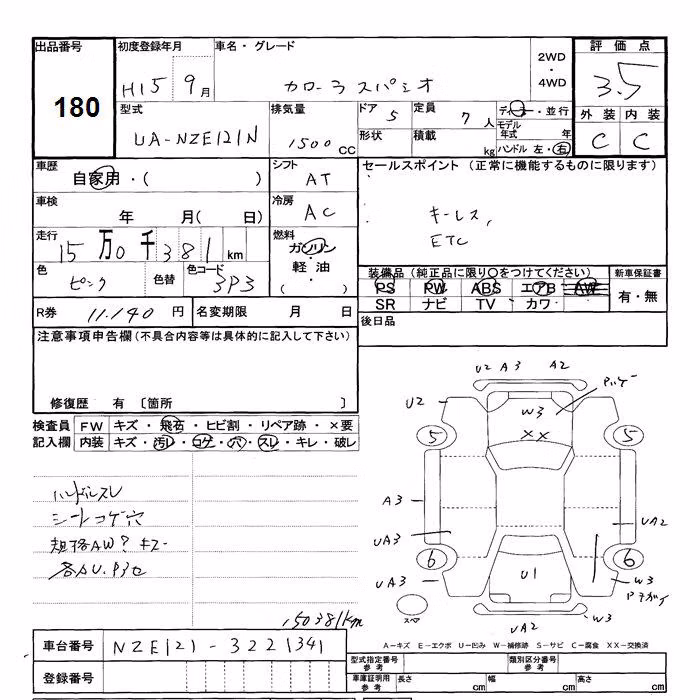 出品番号 初度登録年月 車名・グレード 2WD ・ 4WD 評価点
180 H15 9月 カローラスパシオ 3.5
型式 排気量 ドア 5 定員 7人 ディーラー・並行 外装 内装
UA-NZE121N 1500CC 形状 積載 kg モデル年式 年 C C
ハンドル 左・右
車歴 シフト セールスポイント (正常に機能するものに限ります)
自家用・( ) AT
車検 冷房
年 月( 日) AC キーレス,
走行 燃料 ETC
15万0千381km ガソリン・
軽油・
( )
色 色替 色コード 装備品 (純正品に限り○をつけてください) 新車保証書
ピンク 3P3 PS PW ABS エアB AW 有・無
SR ナビ TV カワ
R券 11.140円 名変期限 月 日 後日品
注意事項申告欄(不具合内容等は具体的に記入して下さい)
修復歴 有 〔箇所 〕
検査員 FW キズ・飛石・ヒビ割・リペア跡・×要
記入欄 内装 キズ・汚レ・コゲ・穴・スレ・キレ・破レ
U2 A3 A2
U2 W3
XX
5 5
A3 UA2
UA3
6 6
UA3 U1 W3
UA2 W3
スペア
ハンドルスレ
シートコゲ穴
150381km
A=キズ E=エクボ U=凹み W=補修跡 S=サビ C=腐食 XX=交換済
車台番号 NZE121-3221341
登録番号
型式指定番号 参考 類別区分番号 参考
車庫証明用 参考 長さ cm 幅 cm 高さ cm